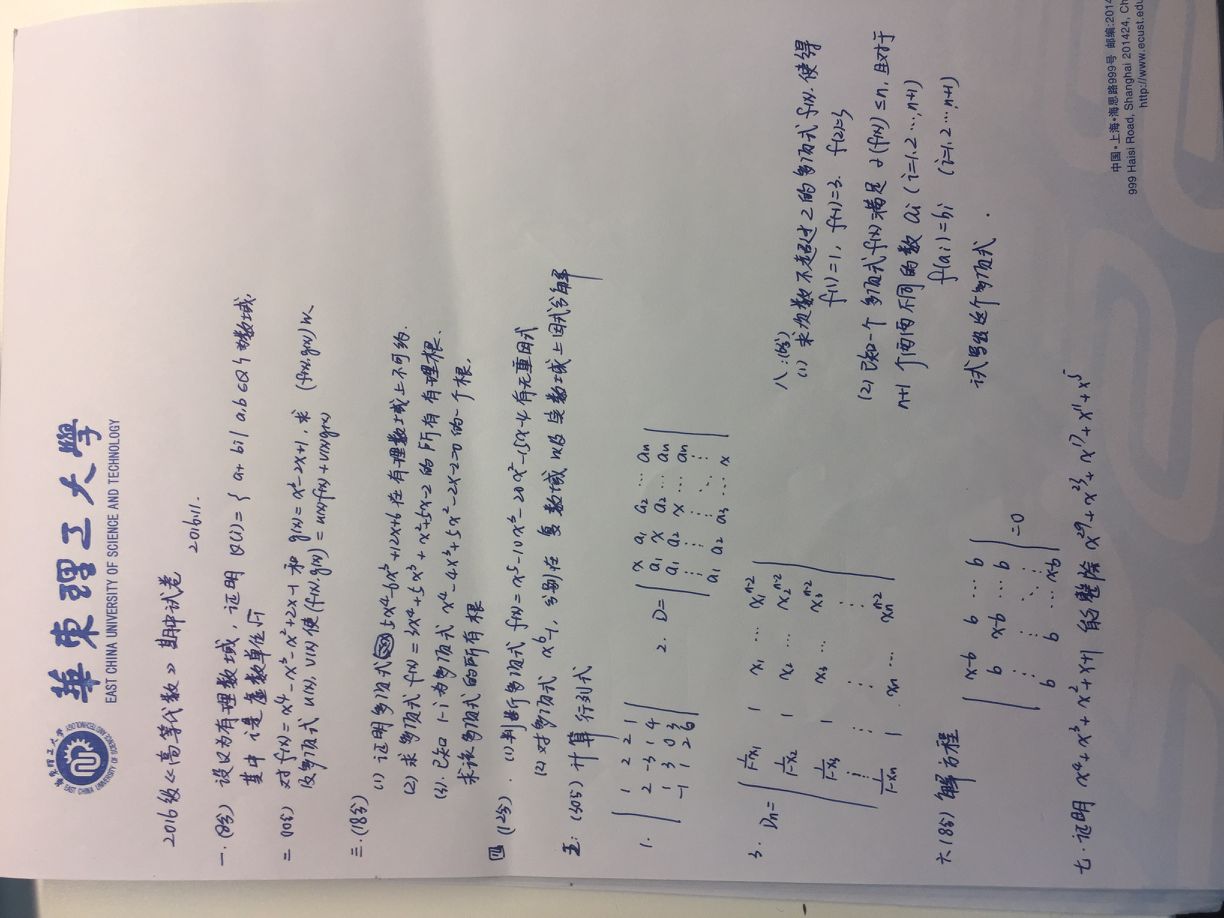 華東理工大學
EAST CHINA UNIVERSITY OF SCIENCE AND TECHNOLOGY
2016级《高等代数》期中试卷
2016.11.
一.(8分) 设Q为有理数域, 证明 Q(i)={a+bi|a,b∈Q}为数域,
其中 i 是虚数单位√-1
二 (10分) 对f(x)=x⁴-x³-x²+2x-1 和 g(x)=x³-2x+1, 求 (f(x),g(x))以
及多项式 u(x),v(x)使(f(x),g(x))=u(x)f(x)+v(x)g(x)
三.(18分)
(1) 证明多项式 5x⁴-6x³+12x+6 在有理数域上不可约.
(2) 求多项式 f(x)=3x⁴+5x³+x²+5x-2 的所有有理根.
(3). 已知 1-i 为多项式 x⁴-4x³+5x²-2x-2=0 的一个根,
求该多项式的所有根
四 (12分). (1)判断多项式 f(x)=x⁵-10x³-20x²-15x-4 有无重因式
(2) 对多项式 x⁶-1, 分别在复数域以及实数域上因式分解
五: (30分) 计算行列式
1. | 1 2 2 1 |
| 2 -3 1 4 |
| 1 3 0 3 |
| -1 1 2 6 |
2. D= | x a₁ a₂ … aₙ |
| a₁ x a₂ … aₙ |
| a₁ a₂ x … aₙ |
| ⋮ ⋮ ⋮ ⋱ ⋮ |
| a₁ a₂ a₃ … x |
3. Dₙ= | 1/(1-x₁) 1 x₁ … x₁ⁿ⁻² |
| 1/(1-x₂) 1 x₂ … x₂ⁿ⁻² |
| 1/(1-x₃) 1 x₃ … x₃ⁿ⁻² |
| ⋮ ⋮ ⋮ ⋮ |
| 1/(1-xₙ) 1 xₙ … xₙⁿ⁻² |
六 (8分) 解方程
| x-b b … b |
| b x-b … b |
| ⋮ ⋮ ⋱ ⋮ |
| b b … x-b | =0
七. 证明 x⁴+x³+x²+x+1 能整除 x²⁹+x²³+x¹⁷+x¹¹+x⁵
八:
(1) 求次数不超过2的多项式 f(x). 使得
f(1)=1, f(-1)=3. f(2)=3
(2) 已知一个多项式f(x)满足 ∂(f(x))≤n, 且对于
n+1 个两两不同的数 aᵢ (i=1,2…,n+1)
f(aᵢ)=bᵢ (i=1,2…,n+1)
试写出这个多项式.
中国·上海·海思路999号 邮编:2014
999 Haisi Road, Shanghai 201424, Ch
http://www.ecust.edu